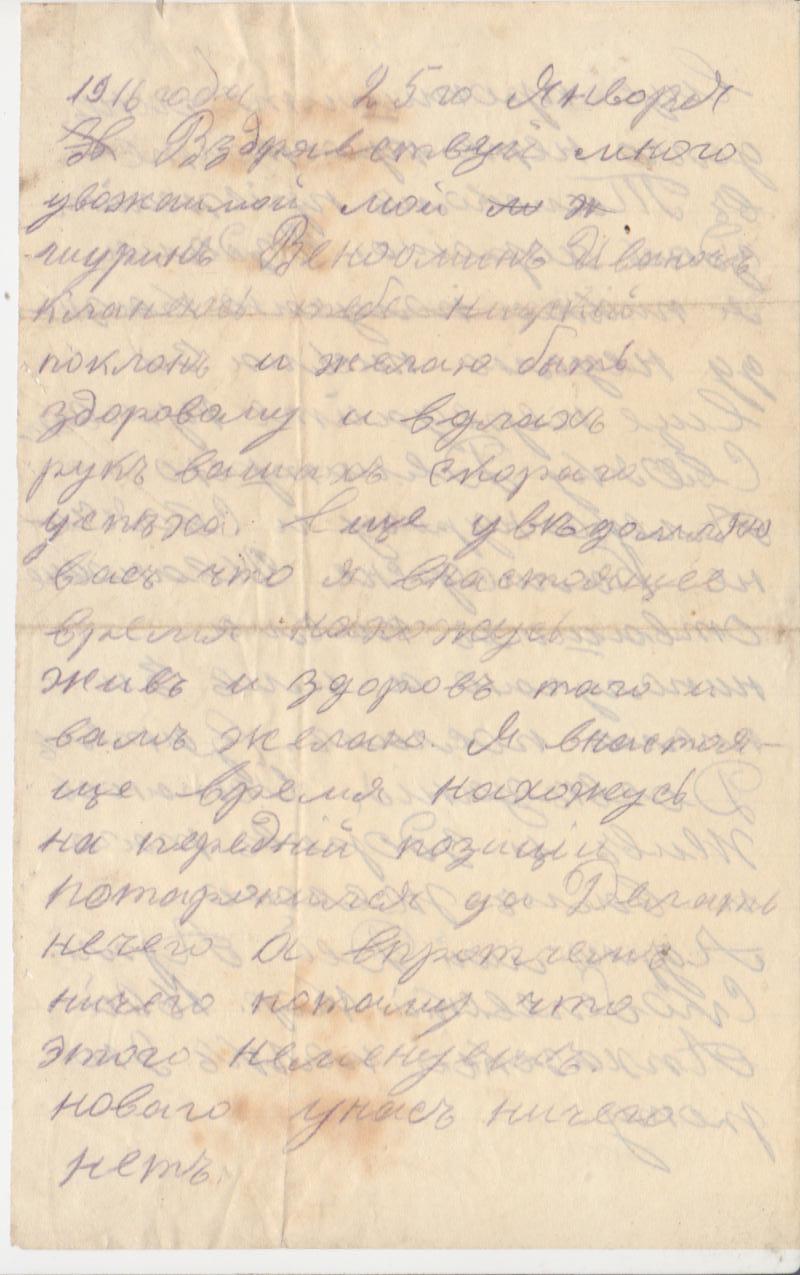 1916 года 25го Января
Вздравствуй много
уважаимой мой
шуринъ Вениоминъ Иваночъ
кланеюсь тебе ниский
поклонъ и желаю быть
здоровому и вдлахъ
рукъ вашихъ скораго
успѣха. Еще увѣдомляю
васъ что я внастоящее
время нахожусь
живъ и здоровъ таго и
вамъ желаю. Я внастоя-
ще время нахожусь
на передній позиціи
потаропился да Делать
нечего А впротчемъ
ничего потаму что
этого неменуешъ
новаго унасъ ничего
нетъ.